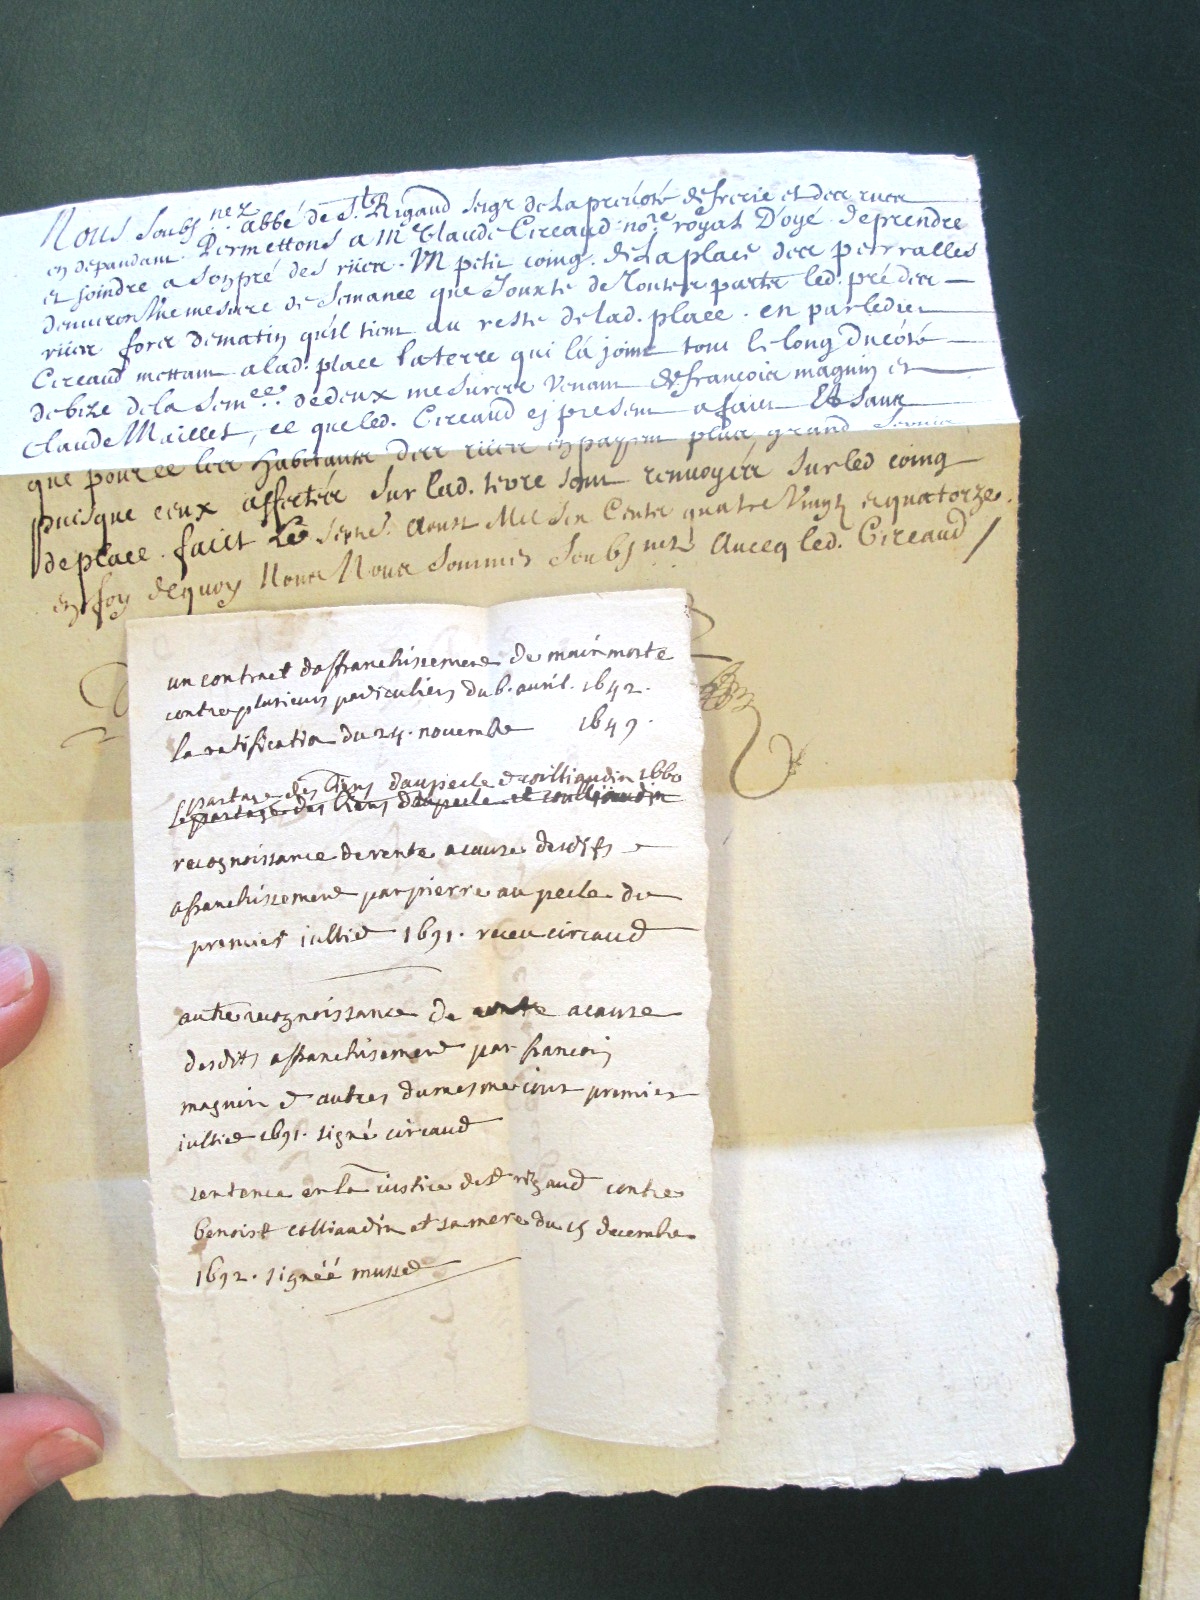 Nous Soubs.nez abbé de St Rigaud seigr de la prévôté de frerie et der ruer
en dépandant. Permettons a Mre Claude Circaud no.re royal D'oyé de prendre
et joindre a son pré des riier. Un petit coing. de la place der perralles
denviron Une mesure de Semance que Jouxte de Toutes parter led. pré der
riier forer de matin qu'il tient au reste de lad. place. en par ledit
Circaud mettant a lad. place la terre qui la joint tout le long du côté
de bize de la Sem.ce de deux mesurer Venant de francoir magnin et
Claude Maillet, ce que led. Circaud ej present a faict Et sanr
que pour ce ler Habitantr der riier en payent plur grand Servir
puisque ceux affectér sur lad. terre sont renvoyér sur led coing
de place. faict Le sept. Aoust Mil Six Centr quatre Vingtz et quatorze.
en foy de quoy Nour Nour Sommes Soubsnez Avecq led. Circaud /
un contract daffranchissement de mainmorte
contre plusieurs particuliers du 6. avril. 1642.
la ratification du 24. novembre 1649.
le partage des biens daupecle et coilliandin 1660
le partage des biens daupecle et coilliandin
recognoissance de rente a cause desdits
afranchissement par pierre aupecle du
premier iulliet 1691. receu circaud
autre recognoissance de rente a cause
desdits afranchisement par francois
magnin et autres du mesme iour premier
iulliet 1691. signé circaud
sentence en la iustice de St rigaud contre
benoist colliandin et sa mere du 15 decembre
1692. signéé musset